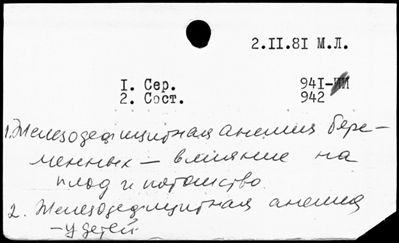 2.II.81 М.Л.
I. Сер. 941-
2. Сост. 942
1. Железодефицитная анемия бере-
менных – влияние на
плод и потомство.
2. Железодефицитная анемия
– у детей